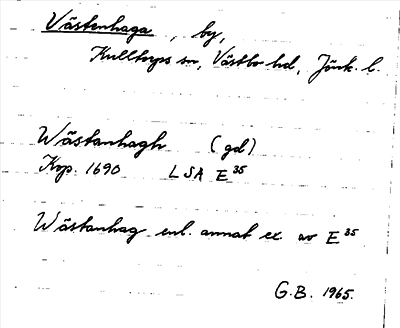 Västenhaga, by,
Kulltorps sn, Västbo hd, Jönk. l.
Wästanhagh (gd)
Kop. 1690 LSA E 35
Wästanhag enl. annat ex. av E 35
G.B. 1965.